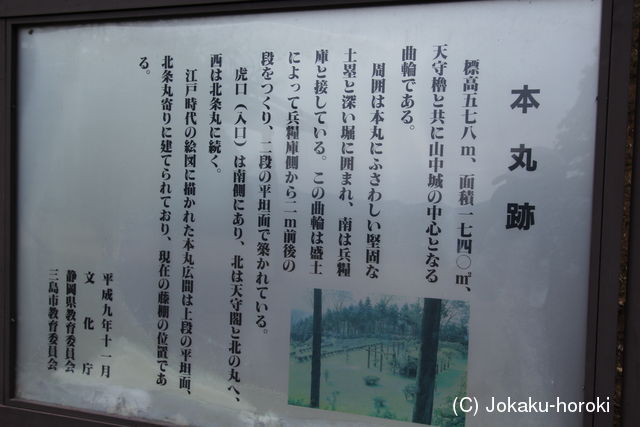 本丸跡
標高五七八ｍ、面積一七四〇㎡、
天守櫓と共に山中城の中心となる
曲輪である。
周囲は本丸にふさわしい堅固な
土塁と深い堀に囲まれ、南は兵糧
庫と接している。この曲輪は盛土
によって兵糧庫側から二ｍ前後の
段をつくり、二段の平坦面で築かれている。
虎口（入口）は南側にあり、北は天守閣と北の丸へ、
西は北条丸に続く。
江戸時代の絵図に描かれた本丸広間は上段の平坦面、
北条丸寄りに建てられており、現在の藤棚の位置であ
る。
平成九年十一月
文化庁
静岡県教育委員会
三島市教育委員会
(C) Jokaku-horoki